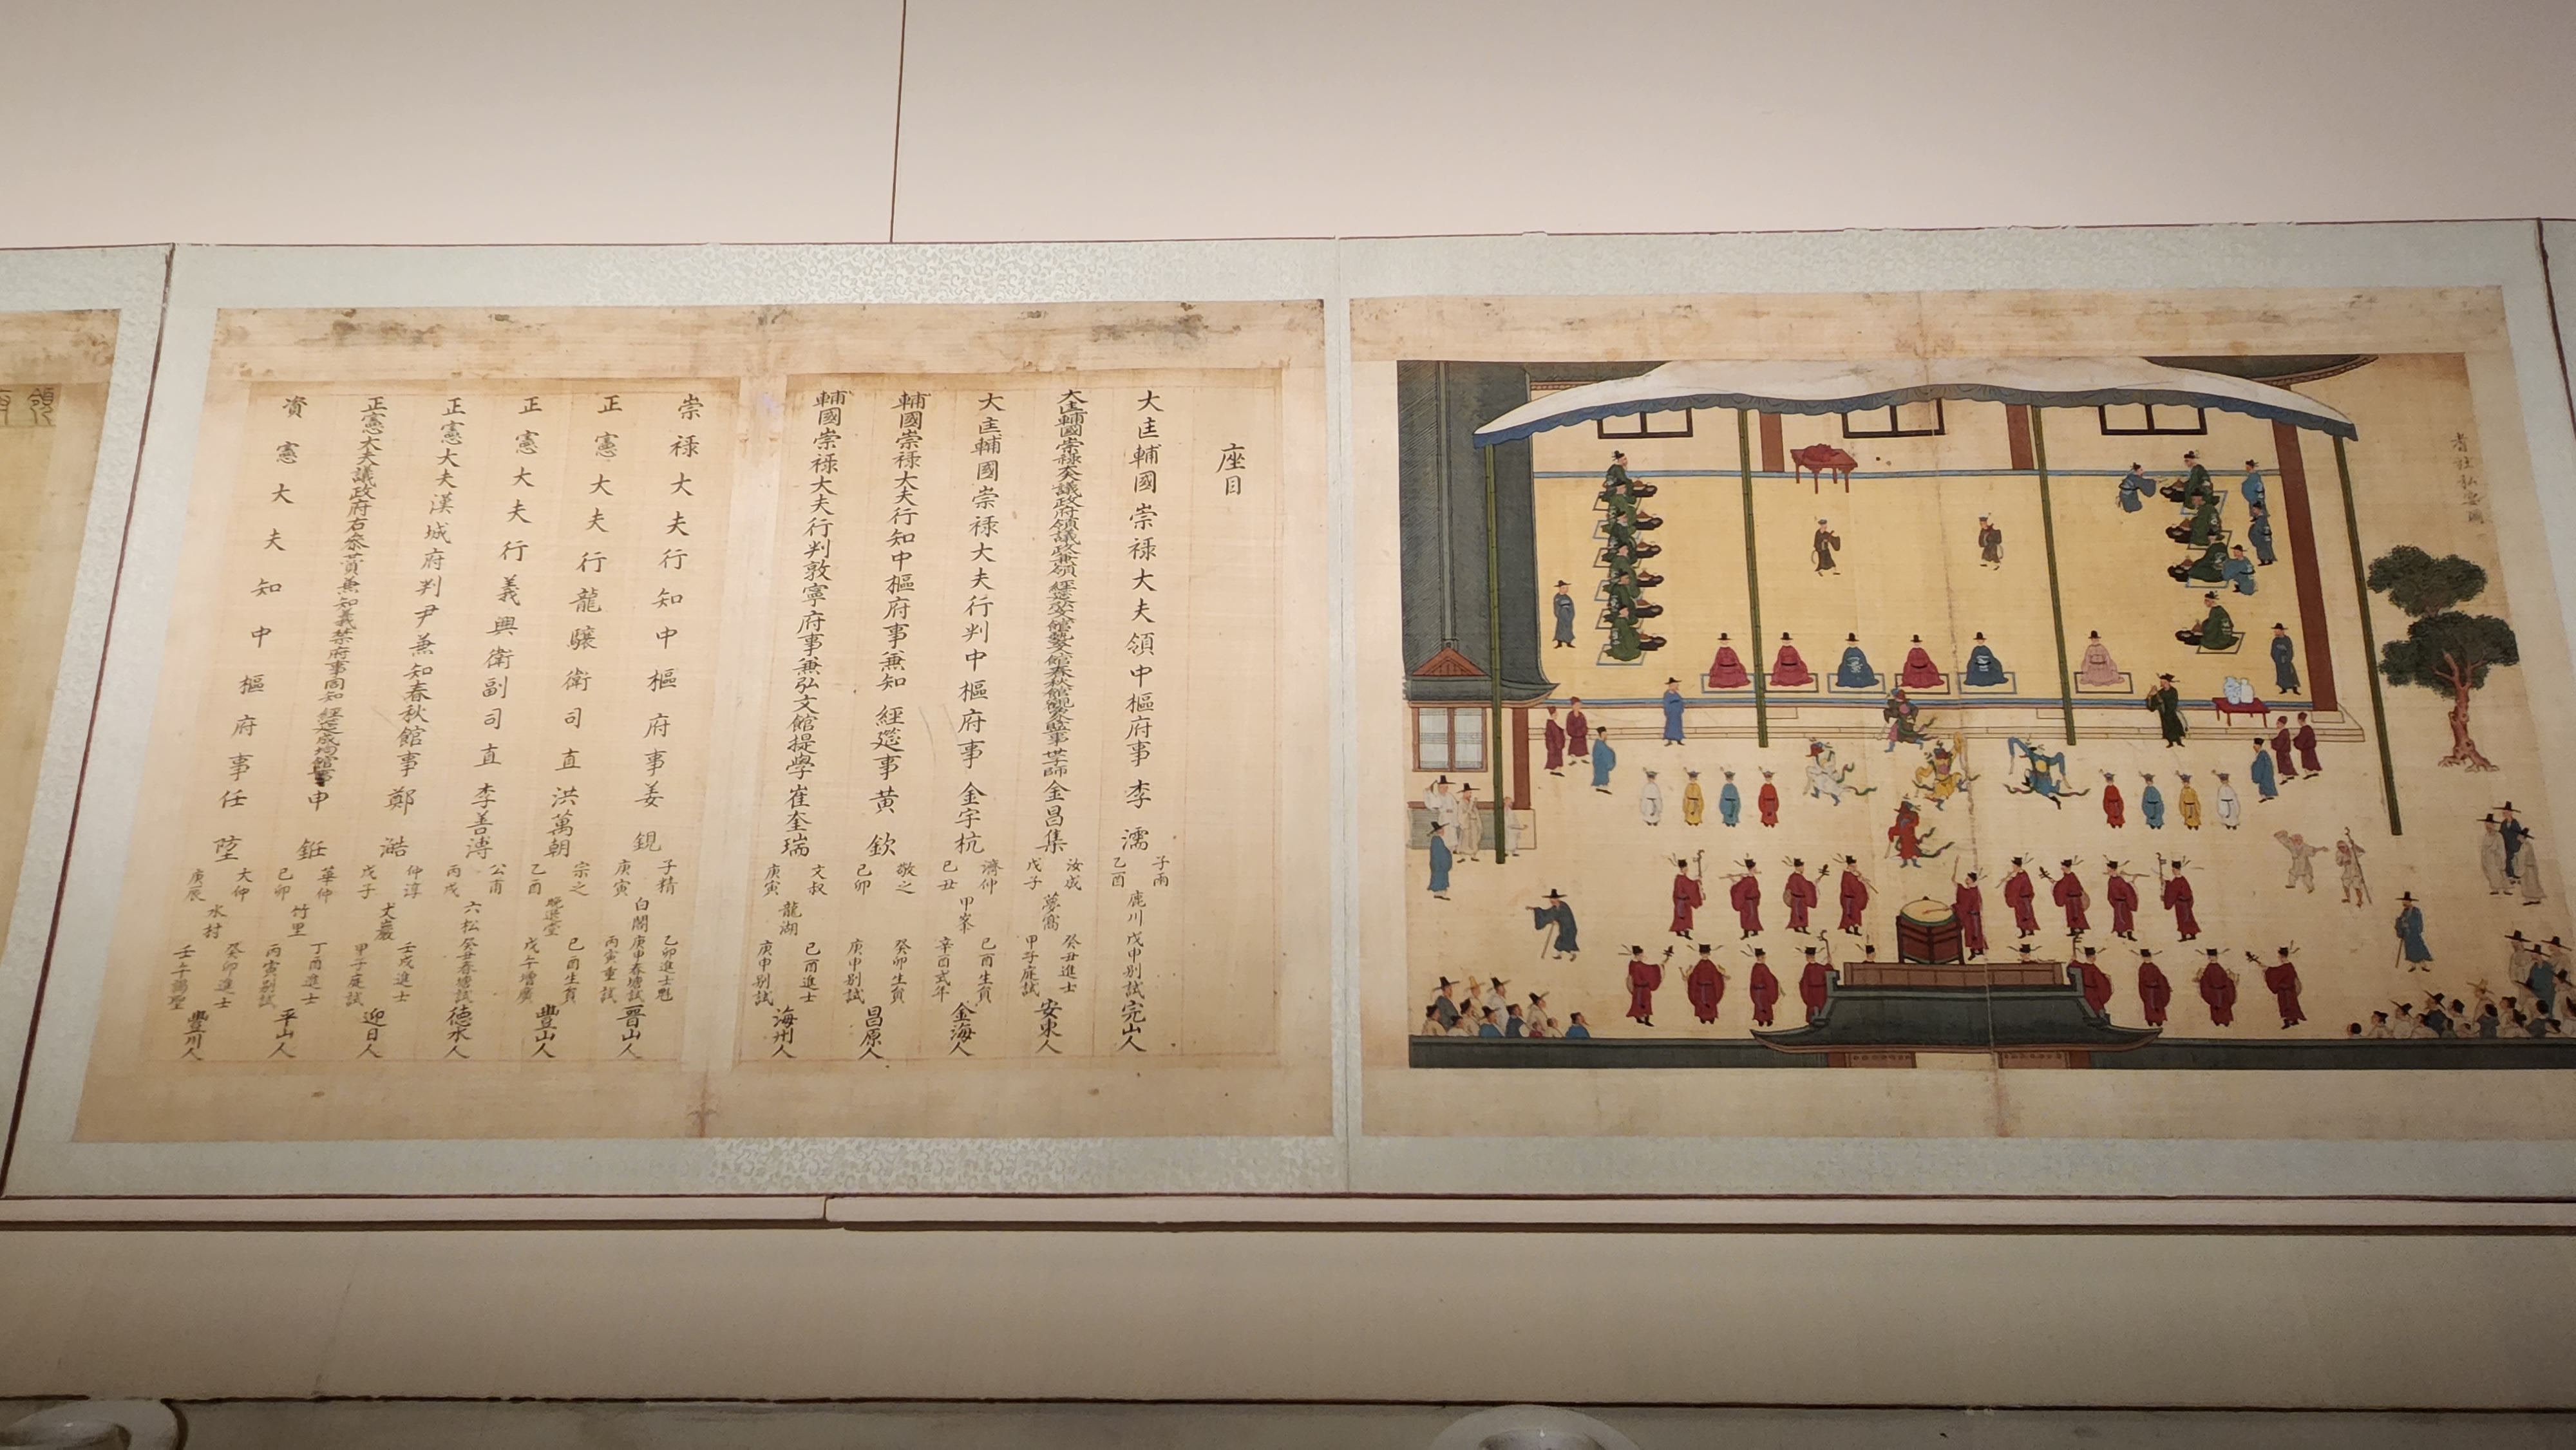 耆社私宴圖
座目
大匡輔國崇祿大夫領中樞府事李濡 子雨 乙酉 鹿川 戊申別試 完山人
大匡輔國崇祿大夫議政府領議政兼領 經筵弘文館藝文館春秋館觀象監事 世子師金昌集 汝成 戊子 夢窩 癸丑進士 甲子庭試 安東人
大匡輔國崇祿大夫行判中樞府事金宇杭 濟仲 己丑 甲峯 己酉生員 辛酉式年 金海人
輔國崇祿大夫行知中樞府事兼知 經筵事黃欽 敬之 己卯 癸卯生員 庚申別試 昌原人
輔國崇祿大夫行判敦寧府事兼弘文館提學崔奎瑞 文叔 庚寅 龍湖 己酉進士 庚申別試 海州人
崇祿大夫行知中樞府事姜鋧 子精 庚寅 白閣 乙卯進士魁 庚申春塘試 丙寅重試 晉山人
正憲大夫行龍驤衛司直洪萬朝 宗之 乙酉 晚退堂 己酉生員 戊午增廣 豐山人
正憲大夫行義興衛副司直李善溥 公甫 丙戌 六松 癸丑春塘試 德水人
正憲大夫漢城府判尹兼知春秋館事鄭澔 仲淳 戊子 丈巖 壬戌進士 甲子庭試 迎日人
正憲大夫議政府右參贊兼知義禁府事同知 經筵成均館事申銋 華仲 己卯 竹里 丁酉進士 丙寅別試 平山人
資憲大夫知中樞府事任埅 大仲 庚辰 水村 癸卯進士 壬午謁聖 豐川人
領